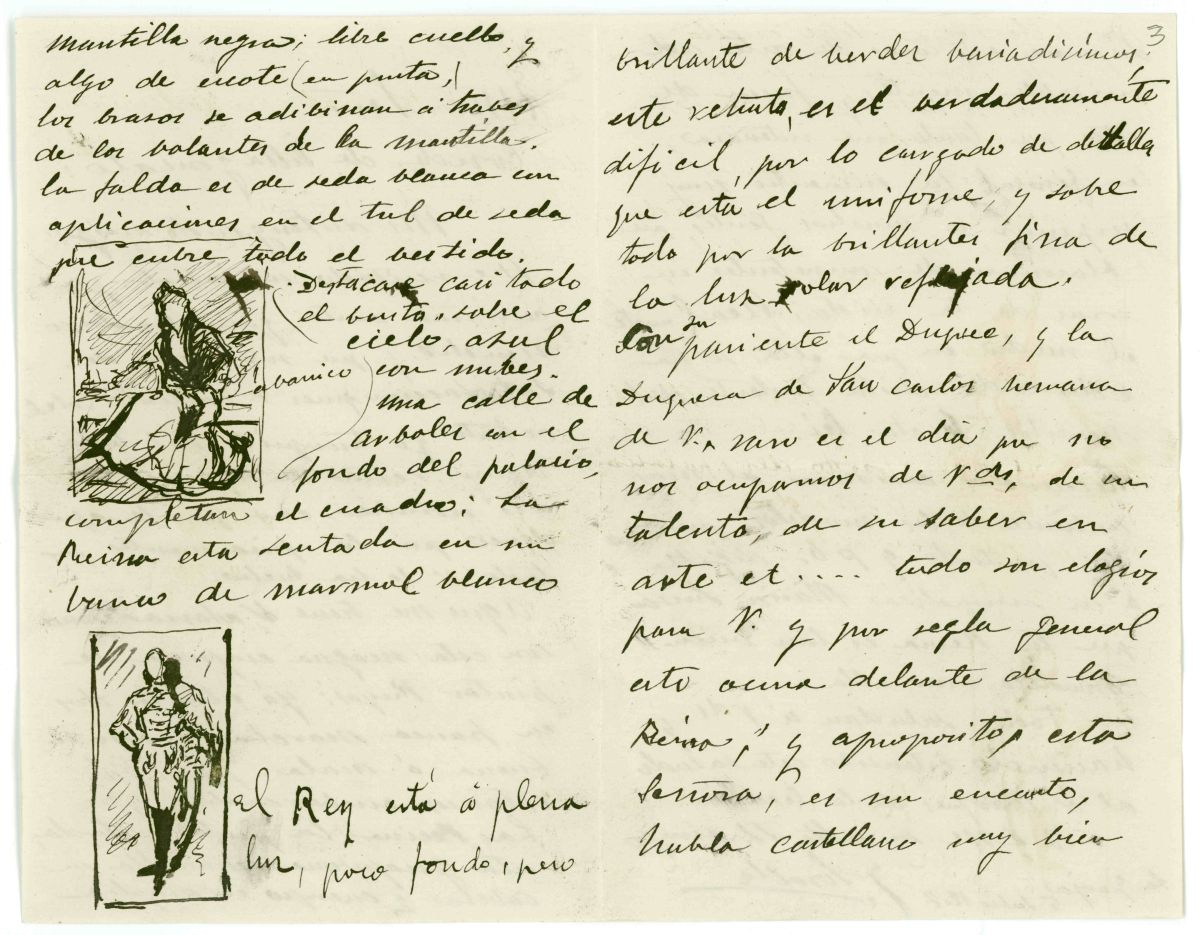 mantilla negra; libre cuello, y
algo de escote (en punta,)
los brasos se adibinan á traves
de los volantes de la mantilla.
la falda es de seda blanca con
aplicaciones en el tul de seda
que cubre todo el vestido.
Destacase casi todo
el busto, sobre el
cielo, azul
abanico
con nubes.
una calle de
arboles con el
fondo del palacio,
completan el cuadro; La
Reina esta sentada en un
banco de marmol blanco
el Rey está á plena
luz, poco fondo, pero
3
brillante de verdes variadisimos,
este retrato, es el verdaderamente
dificil, por lo cargado de detalles
que está el uniforme, y sobre
todo por la brillantes fisica de
la luz solar reflejada.
Con su pariente el Duque, y la
Duquesa de San Carlos hermana
de V., raro es el dia que no
nos ocupamos de Vds, de su
talento, de su saber en
arte et .... todo son elogios
para V. y por regla general
esto ocurre delante de la
Reina; y aproposito, esta
Señora, es un encanto,
habla castellano muy bien